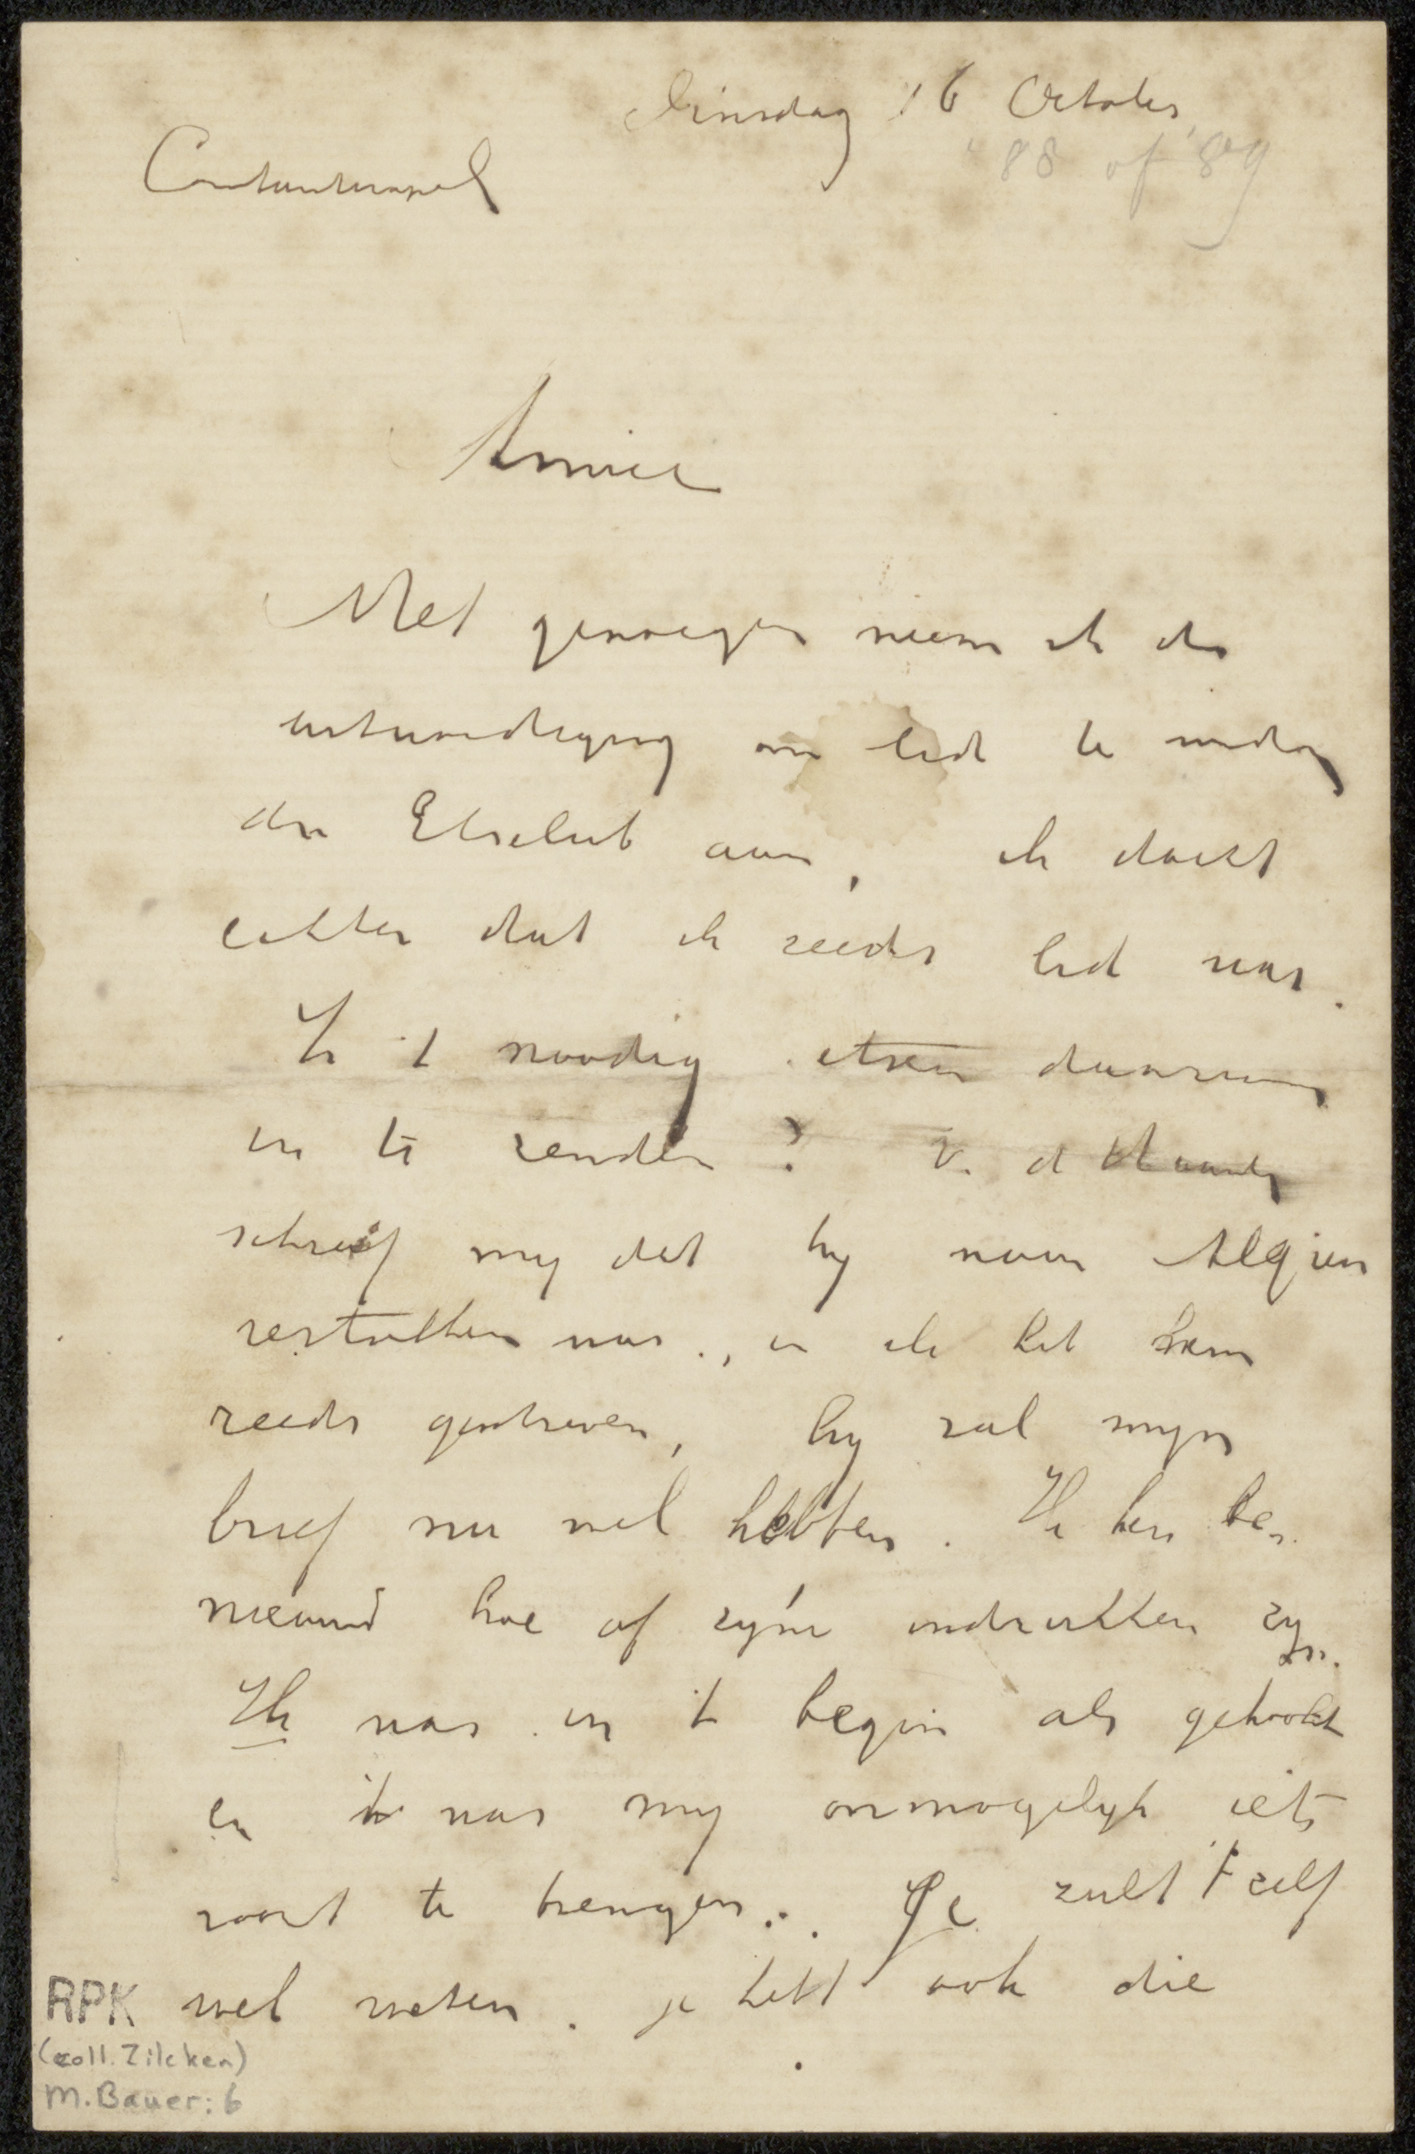 Dinsdag 16 October
'88 of '89
Constantinopel
Amice
Met genoegen neem ik de
uitnoodiging om lid te worden
der Etsclub aan, ik dacht
echter dat ik reeds lid was.
Is 't noodig etsen daarvoor
in te zenden? V. d. Maarel
schreef my dat hy naar Algiers
vertrokken was., en ik heb hem
reeds geschreven, hy zal myn
brief nu wel hebben. Ik ben be-
nieuwd hoe of zyne indrukken zyn.
Ik was in 't begin als gekookt
en 't was my onmogelyk iets
voort te brengen.. Je zult 't zelf
wel weten. je hebt ook die
RPK
(coll. Zilcken)
M. Bauer: 6